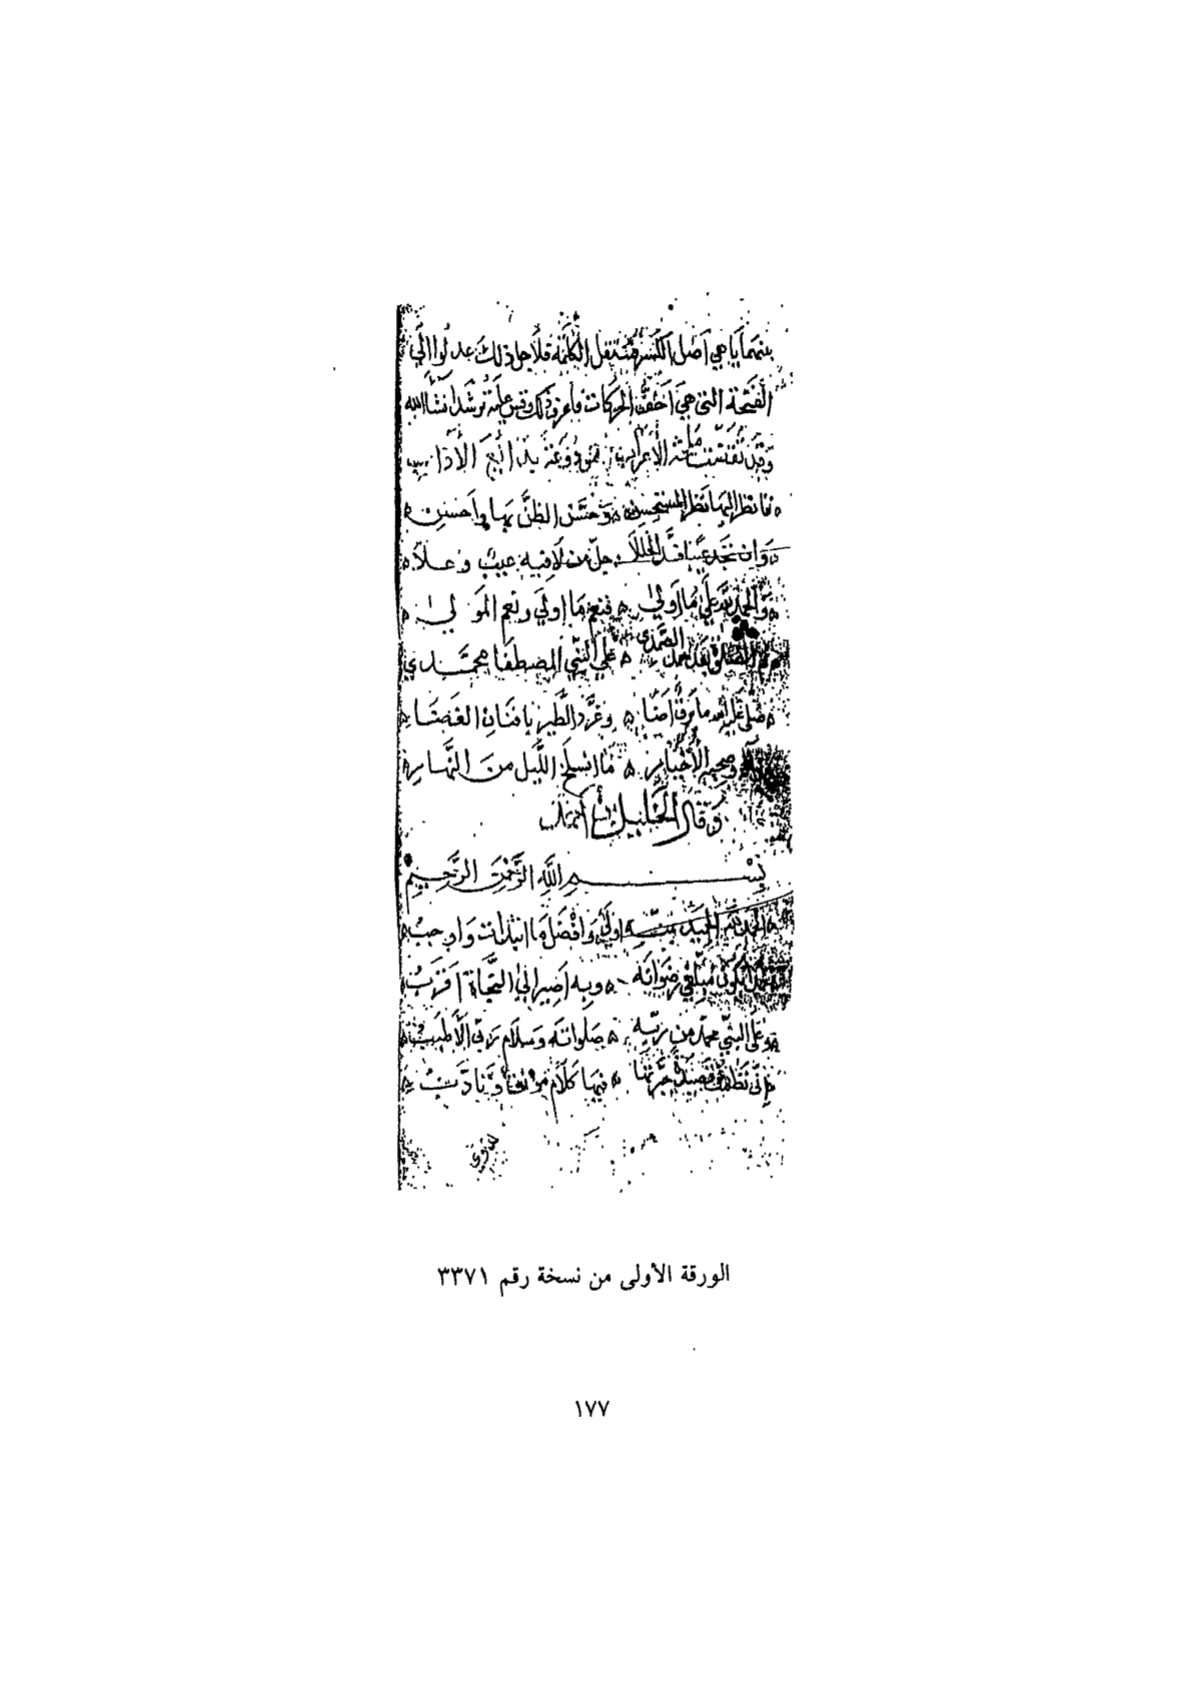 بينهما يا هي اصل الكسرة فتثقل الكلمة فلاجل ذلك عدلوا الى
الفتحة التي هي اخف الحركات فاعرف ذلك وقس عليه ترشد ان شا الله
وقد تقضت ملحة الاعراب مودعة بدائع الاداب
فانظر اليها نظر المستحسن وحسن الظن بها واحسن
وان تجد عيبا فسد الخللا جل من لا فيه عيب وعلا
والحمد لله على ما اولى فنعم ما اولى ونعم المولى
ثم الصلاة بعد حمد الصمدي على النبي المصطفا محمدي
صلى عليه الله ما برق اضا وغرد الطير بافنان الغضا
وصحبه الاخيار ما انسلخ الليل من النهار
وقال الخليل بن احمد
بسم الله الرحمن الرحيم
الحمد لله الحميد بمنه اولى وافضل ما ابتدات واوجب
يكون مبلغي رضوانه وبه اصير الى النجاة اقرب
وعلى النبي محمد من ربه صلواته وسلام ربي الاطيب
اني نظمت قصيدة حبرتها فيها كلام مونق وتادب
الورقة الأولى من نسخة رقم ٣٣٧١
١٧٧